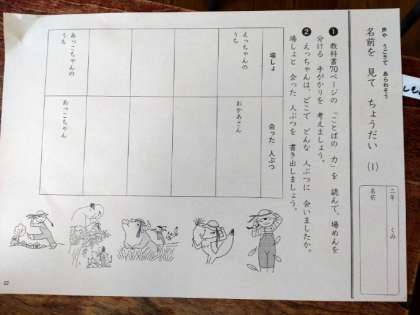 声や うごきで あらわそう
名前を 見て ちょうだい (1)
二年 くみ
名前
❶ 教科書70ページの 「ことばの 力」を 読んで、場めんを
分ける 手がかりを 考えましょう。
❷ えっちゃんは、どこで どんな 人ぶつに 会いましたか。
場しょと 会った 人ぶつを 書き出しましょう。
場しょ
会った 人ぶつ
えっちゃんの
うち
おかあさん
あっこちゃんの
うち
あっこちゃん
22